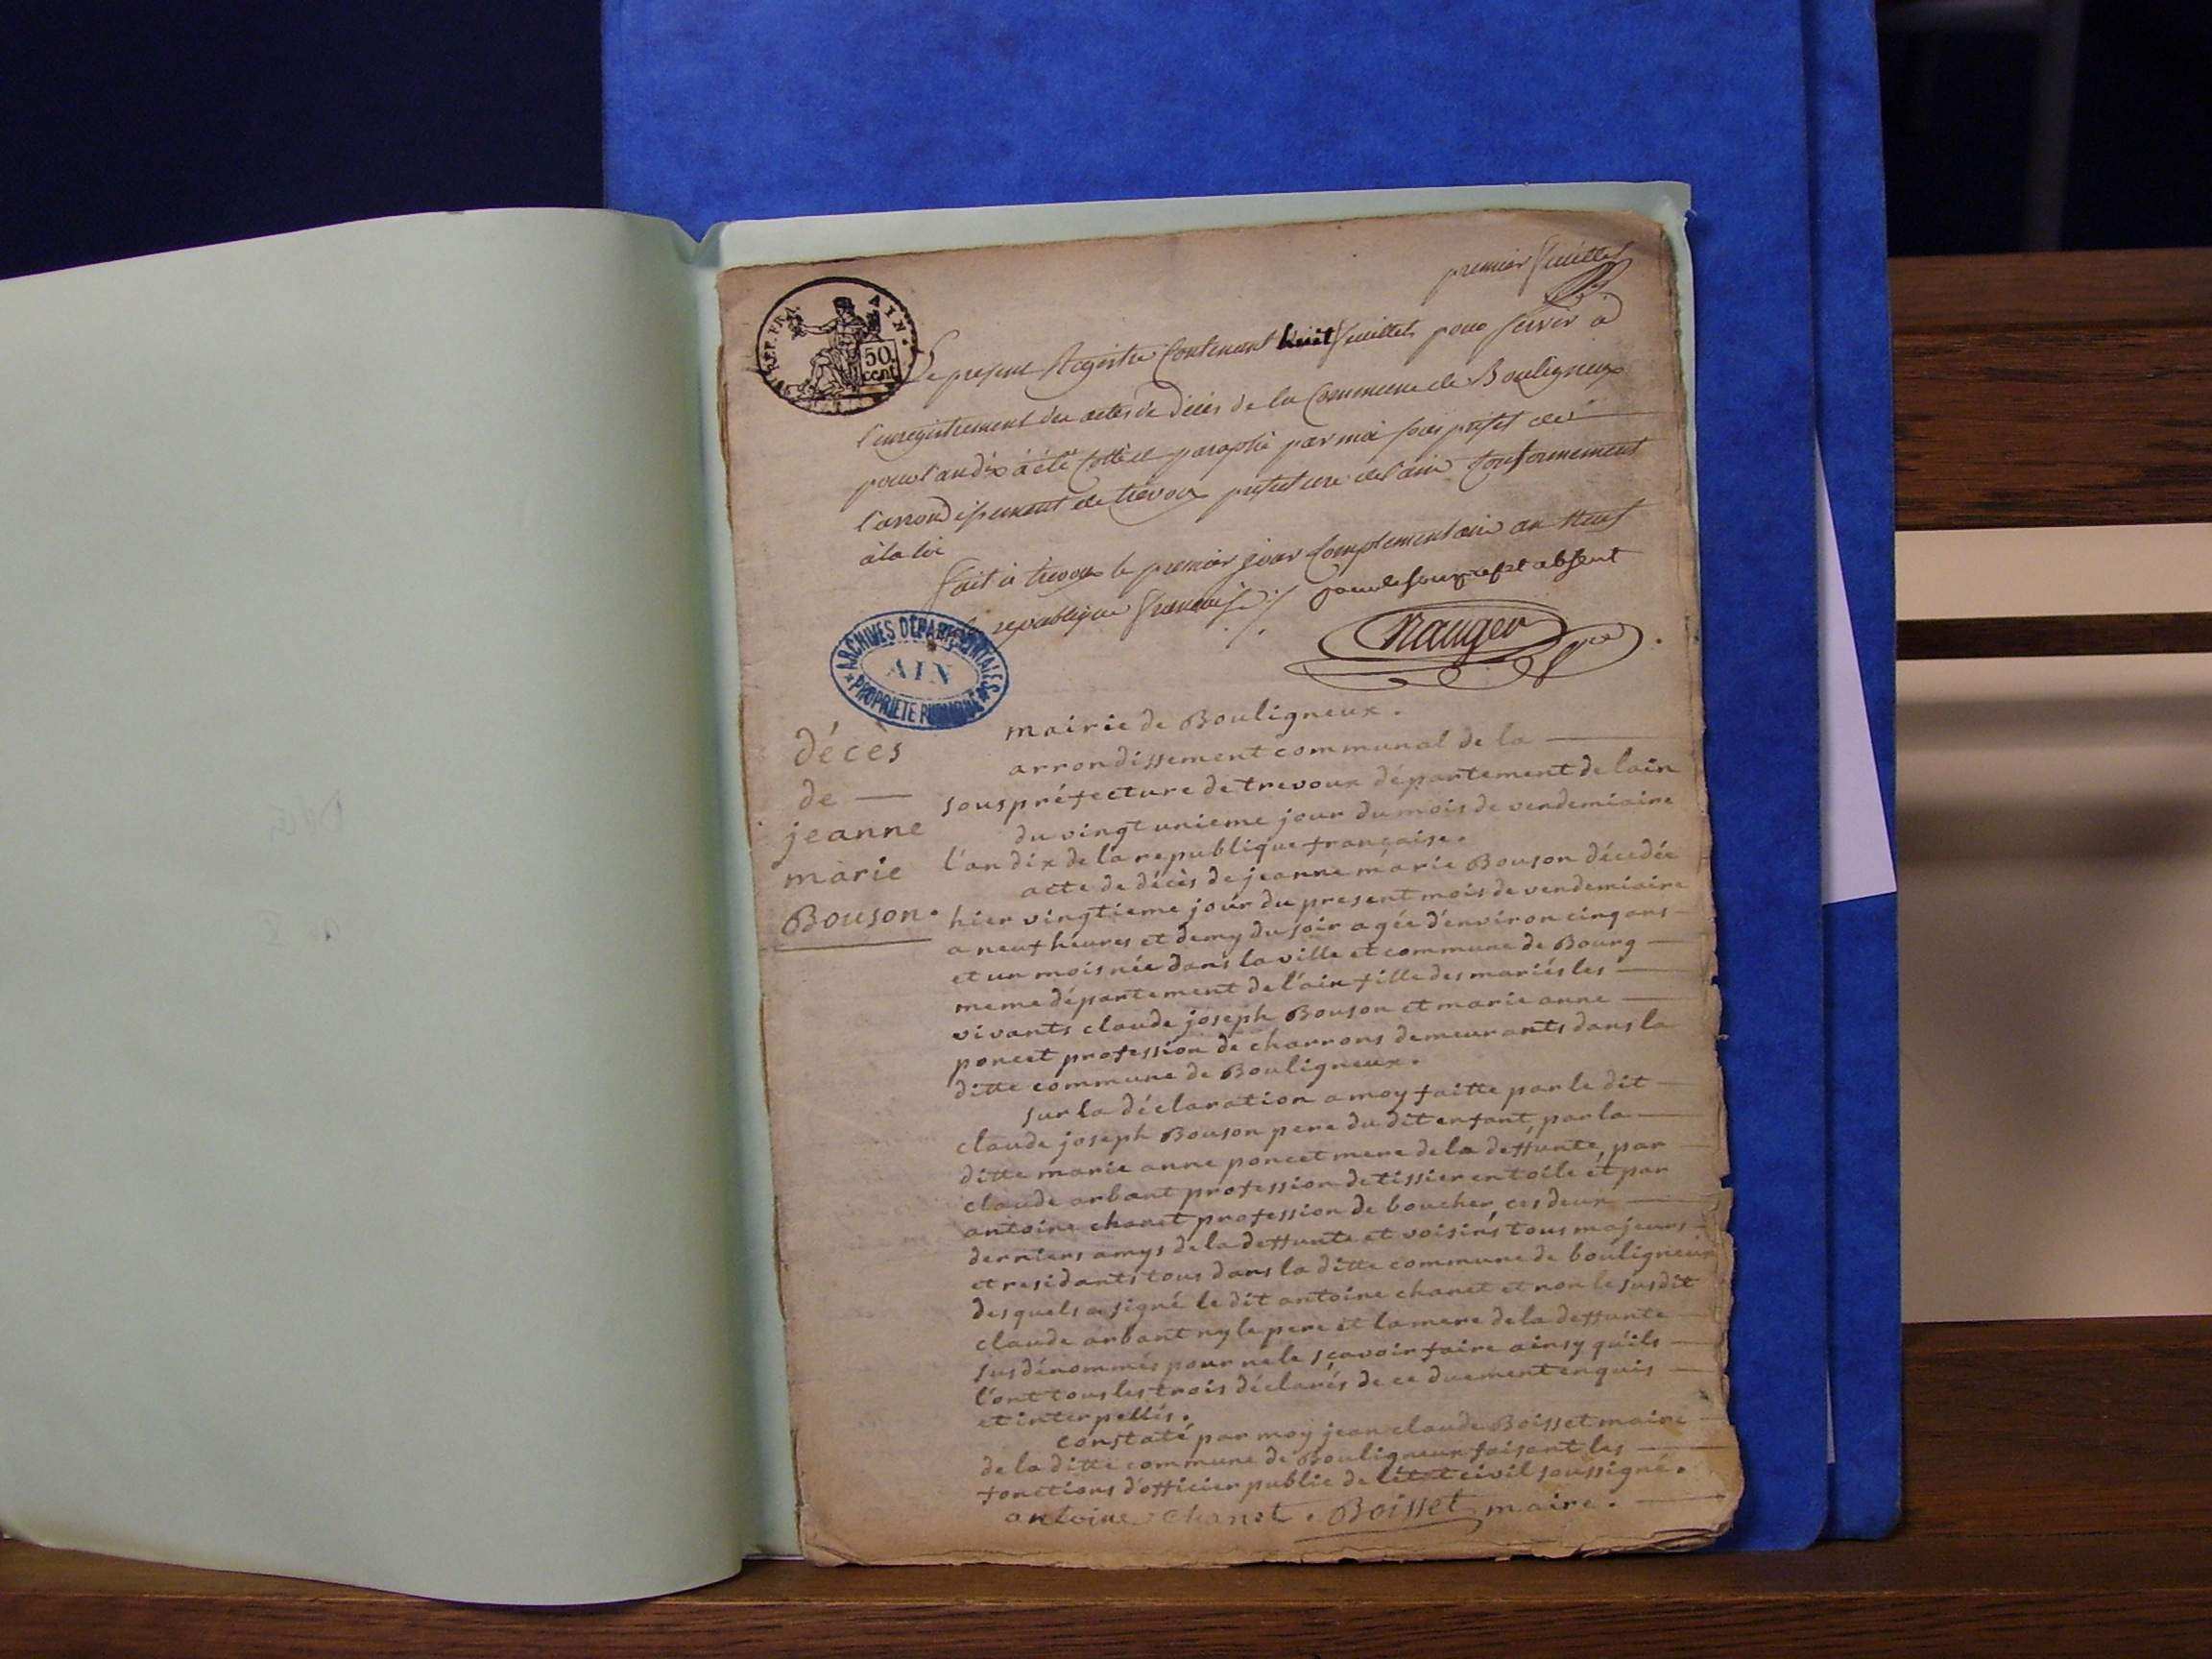 premier feuillet
REP. FRA.
AIN.
50
cent
Le present Registre Contenant huit feuillets pour servir a
l'enregistrement des actes de décès de la Commune de Bouligneux
pour l'an dix à été Cotté et paraphé par moi sous préfet de
l'arrondissement de trevoux préfecture de l'ain Conformement
à la loi
fait à trevoux le premier jour Complementaire an neuf
republique francaise ./. pour le sous prefet absent
ARCHIVES DÉPARTEMENTALES
AIN
PROPRIÉTÉ PUBLIQUE
mairie de Bouligneux.
décès
de
jeanne
marie
Bouson.
arrondissement communal de la
souspréfecture de trevoux département de lain
du vingt unieme jour du mois de vendemiaire
l'an dix de la republique française.
acte de décès de jeanne marie Bouson décedée
hier vingtieme jour du present mois de vendemiaire
a neuf heures et demy du soir agée d'environ cinq ans
et un mois née dans la ville et commune de Bourg
meme département de l'ain fille des mariés les
vivants claude joseph Bouson et marie anne
poncet profession de charrons demeurants dans la
ditte commune de Bouligneux.
sur la déclaration a moy faitte par le dit
claude joseph Bouson pere du dit enfant, par la
ditte marie anne poncet mere de la deffunte, par
claude arbant profession de tissier en toile et par
antoine chanet profession de boucher, ces deux
derniers amys de la deffunte et voisins tous majeurs
et residants tous dans la ditte commune de bouligneux
desquels a signé le dit antoine chanet et non le susdit
claude arbant ny le pere et la mere de la deffunte
susdénommés pour ne le sçavoir faire ainsy quils
l'ont tous les trois déclarés de ce duement enquis
et interpellés.
constaté par moy jean claude Boisset maire
de la ditte commune de Bouligneux faisant les
fonctions d'officier public de l'état civil soussigné.
antoine chanet. Boisset maire.